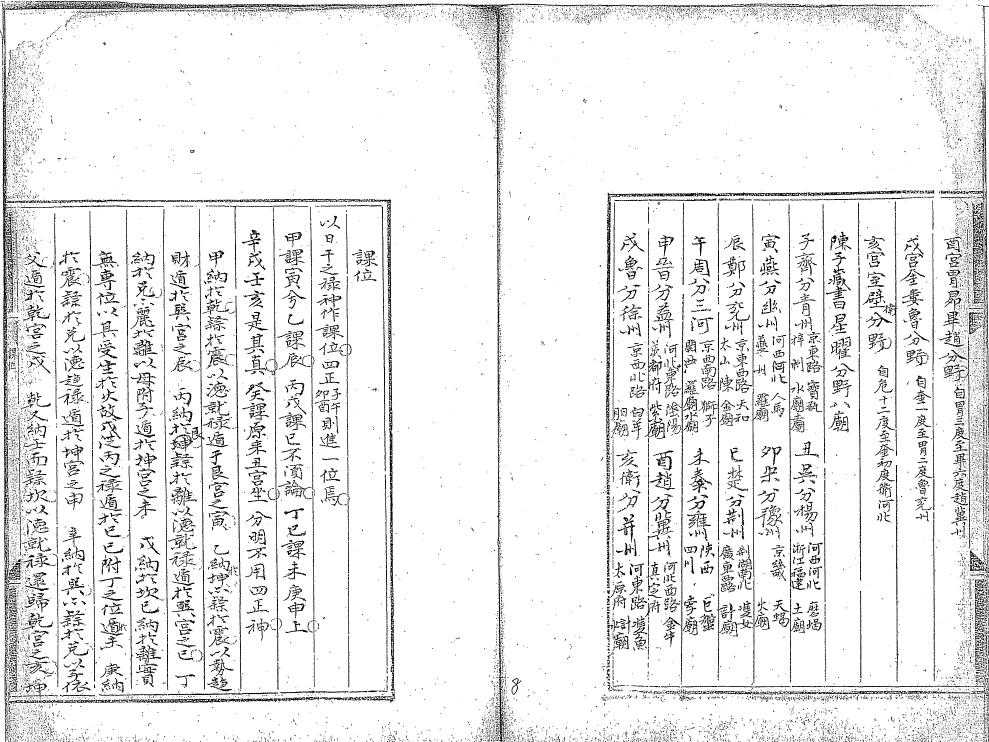 酉宮胃昴畢趙分野 自胃三度至畢六度趙冀州
戌宮奎婁魯分野 自奎一度至胃二度魯兗州
亥宮室壁衛分野 自危十二度至奎初度衛河北
陳子藏書星曜分野八廟
子齊分青州 京東路 寶瓶 水廟 丑吳分楊州 河西河北 浙江福建 磨蝎 土廟
寅燕分幽州 河西河北 人馬 羅廟 卯宋分豫州 京畿 天蝎 火廟
辰鄭分兗州 京東西路 太山 天和 金廟 巳楚分荆州 荆湖南北 廣東西路 雙女 計廟
午周分三河 京西南路 關西 獅子 羅廟水廟 未秦分雍州 陝西 四川 巨蟹 孛廟
申晉分益州 河北東路 成都府 陰陽 紫廟 酉趙分冀州 河北西路 真定府 金牛
戌魯分徐州 京西北路 白羊 亥衛分并州 河東路 太原府 雙魚
課位
以日干之祿神作課位四正 子午卯酉 則進一位焉
甲課寅兮乙課辰 丙戊課巳不須論 丁巳課未庚申上
辛戌壬亥是其真 癸課原來丑宮坐 分明不用四正神
甲納於乾隸於震以德就祿遁于艮宮之寅 乙納坤亦隸於震以勢趨
財遁於巽宮之辰 丙納於艮隸於離以德就祿遁於巽宮之巳 丁
納於兌亦麗於離以母附子遁於坤宮之未 戊納於坎巳納於離實
無專位以其受生於火故戊從丙之祿遁於巳巳附丁之位遁未 庚納
於震隸於兌以德趨祿遁於坤宮之申 辛納於巽亦隸於兌以子依
父遁於乾宮之戌 乾又納壬而隸坎以德就祿還歸乾宮之亥 坤
8